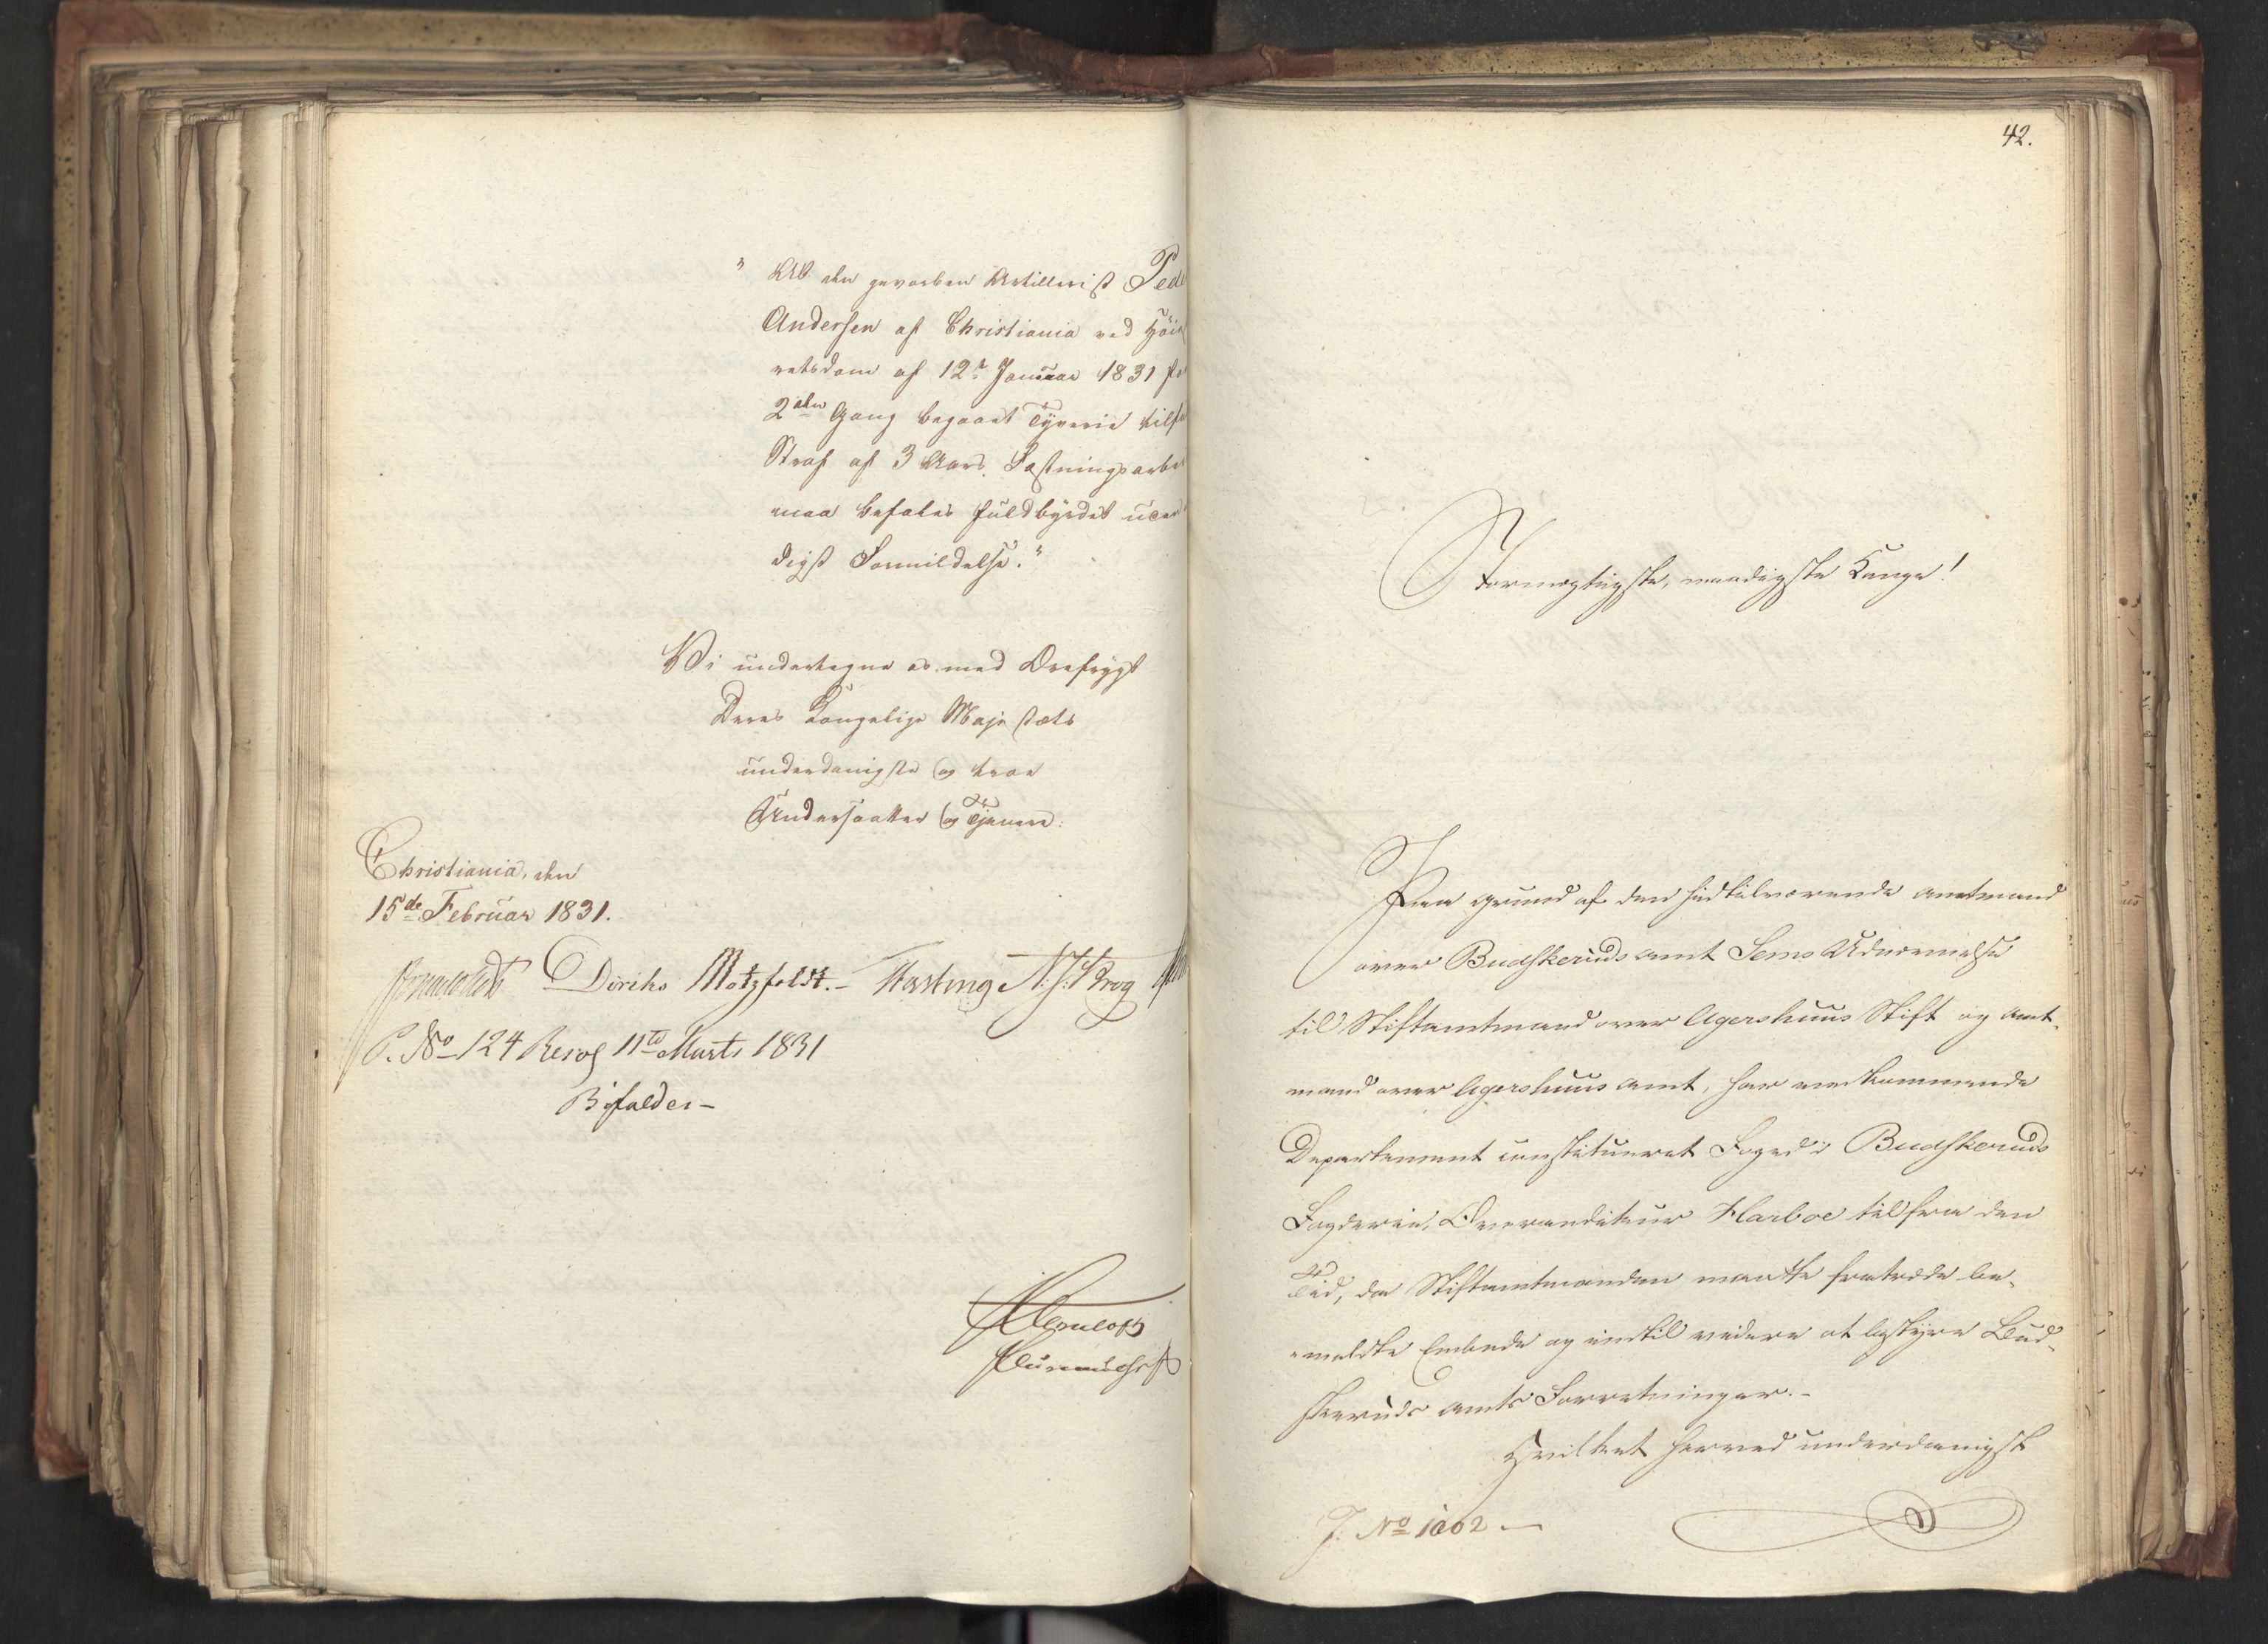 " At den gevorben Artillerist Ped
Andersen af Christiania ved Höie
retsdom af 12te Januar 1831 for
2den Gang begaaet Tyverie tilf
Straf af 3 Aars Fæstningsarbei
maa befales fuldbyrdet uden
digst Formildelse."
Vi undertegne os med Ærefrygt
Deres Kongelige Majestæts
underdanigste og troe
Undersaatter og Tjenere:
Christiania, den
15de Februar 1831.
Diriks Motzfeldt.- N: J: Krog
P. No 124 Resol 11te Marts 1831
Bifaldes -
42.
Stormægtigste, naadigste Konge!
Paa Grund af den hidtilværende Amtmand
over Budskeruds Amt Sems Udnævnelse
til Stiftamtmand over Agershuus Stift og Amt-
mand over Agershuus Amt, har vedkommende
Departement constitueret Foged i Budskeruds
Fogderie, Overauditeur Harboe til fra den
Tid, da Stiftamtmanden maatte fratræde be-
meldte Embede og indtil videre at bestyre Bud-
skeruds Amts Forretninger.-
Hvilket herved underdanigst
J: No 1002 -